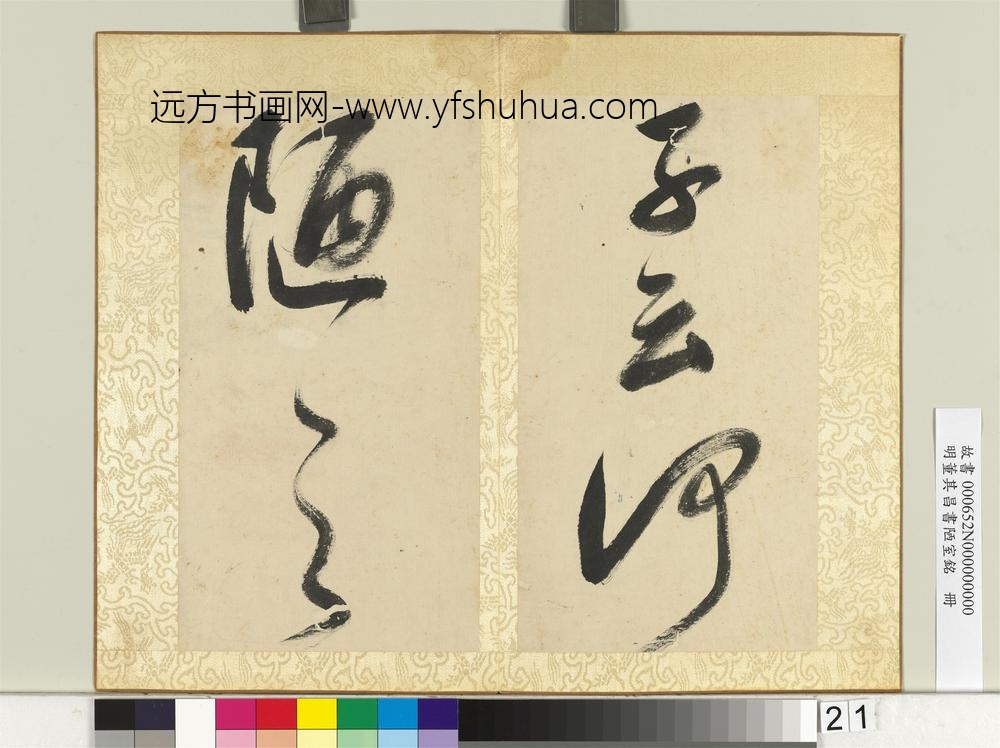 远方书画网-www.yfshuhua.com
子云何
陋之
故書 000652N000000000
明董其昌書陋室銘 冊
21